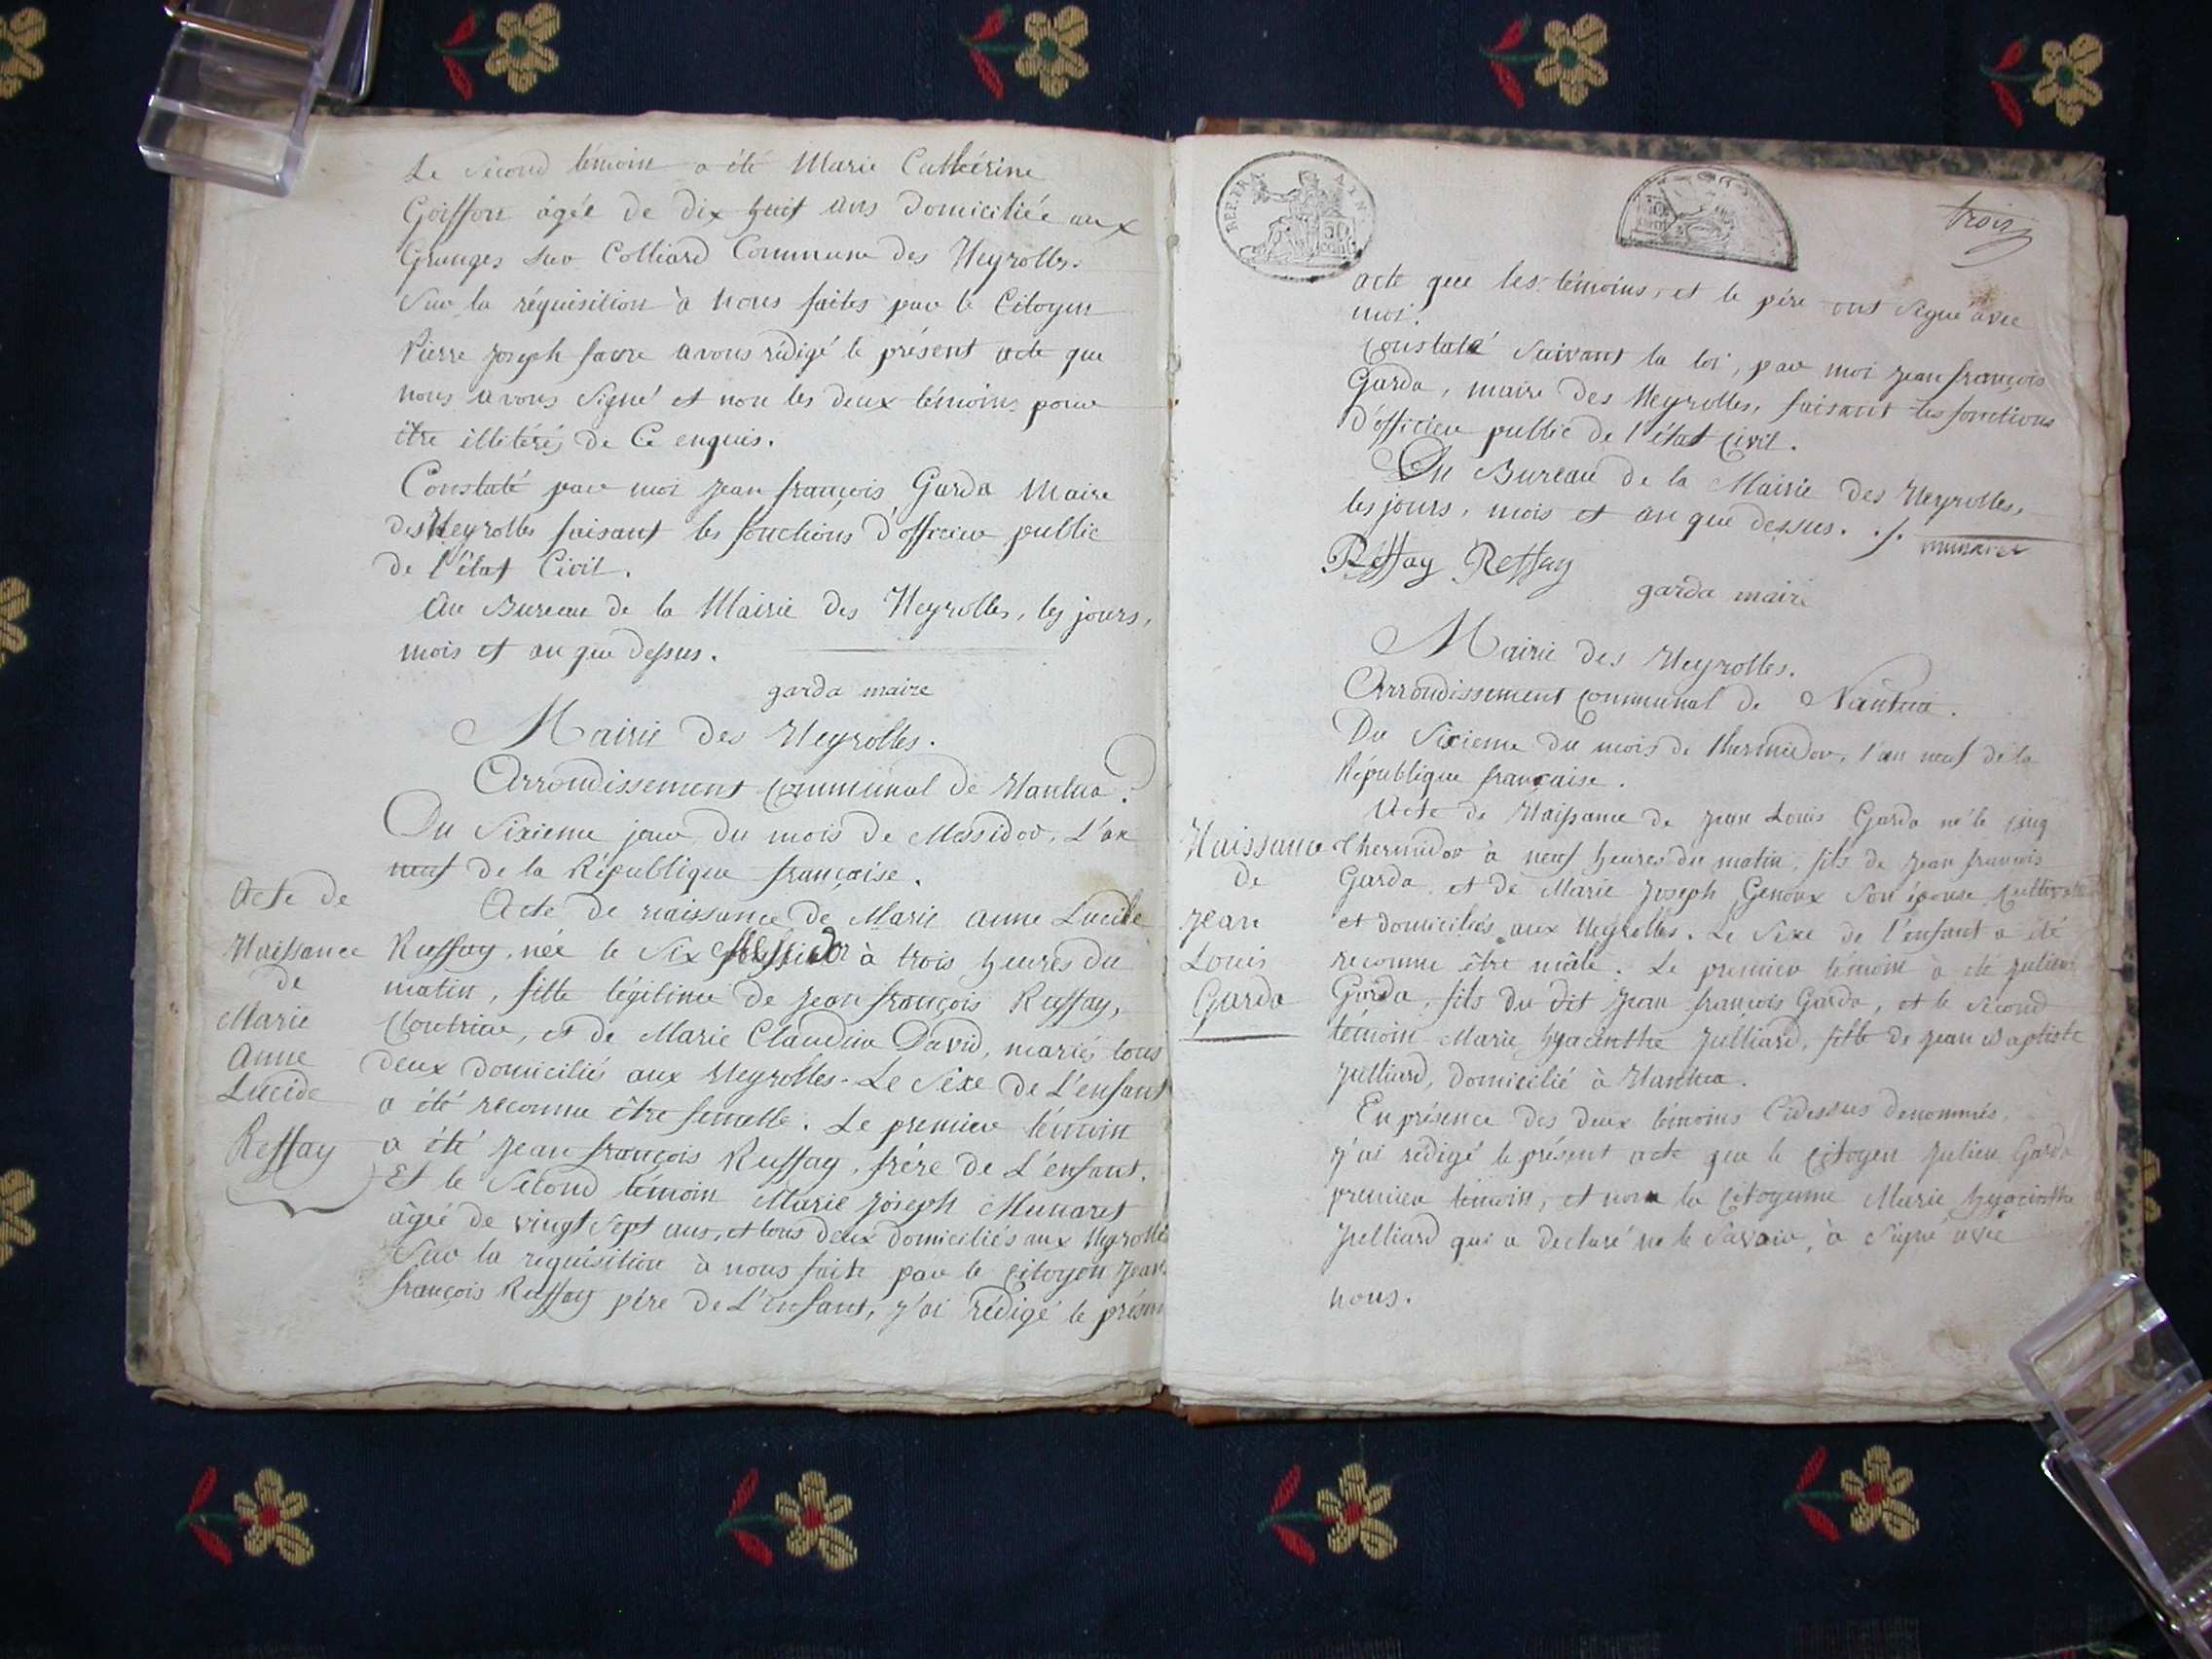 Le Second témoin a été Marie Cathérine
Goiffon âgée de dix huit ans domiciliée aux
Granges sur Colliard Commune des Neyrolles.
Sur la réquisition à nous faites par le Citoyen
Pierre Joseph favre avons rédigé le présent acte que
nous avons Signé et non les deux témoins pour
être illitérés de Ce enquis.
Constaté par moi Jean françois Garda Maire
des Neyrolles faisant les fonctions d'officier public
de l'état Civil.
Au Bureau de la Mairie des Neyrolles, les jours,
mois et an que dessus.
garda maire
Mairie des Neyrolles.
Arrondissement Communal de Nantua.
Du Sixieme jour du mois de Messidor, L'an
neuf de la République française.
Acte de
Naissance
de
Marie
Anne
Lucide
Reffay
Acte de naissance de Marie anne Lucide
Reffay, née le Six Messidor à trois heures du
matin, fille légitime de Jean françois Reffay,
Cloutrier, et de Marie Claudine David, mariés tous
deux domiciliés aux Neyrolles. Le Sexe de L'enfant
a été reconnu être femelle. Le premier témoin
a été Jean françois Reffay, frère de L'enfant.
Et le Second témoin Marie Joseph Munaret
âgée de vingt Sept ans, et tous deux domiciliés aux Neyrolles
Sur la requisition à nous faite par le Citoyen Jean
françois Reffay père de L'enfant, j'ai rédigé le présent
REP. FRA
50 cent
trois
acte que les témoins, et le père ont Signé avec
moi.
Constaté Suivant la loi, par moi Jean françois
Garda, maire des Neyrolles, faisant les fonctions
d'officier public de l'état Civil.
Au Bureau de la Mairie des Neyrolles,
les jours, mois et an que dessus. ./.
munaret
Reffay Reffay
garda maire
Mairie des Neyrolles.
Arrondissement Communal de Nantua.
Du Sixieme du mois de thermidor, l'an neuf de la
République française.
Naissance
de
Jean
Louis
Garda
Acte de Naissance de Jean Louis Garda né le cinq
thermidor à neuf heures du matin, fils de Jean francois
Garda, et de Marie Joseph Genoux Son épouse
et domiciliés aux Neyrolles. Le Sexe de l'enfant a été
reconnu être mâle. Le premier témoin à été Julien
Garda, fils du dit Jean francois Garda, et le Second
témoin Marie hyacinthe Julliard, fille de Jean Baptiste
Julliard, domicilié à Nantua.
En présence des deux témoins Cidessus denommés,
j'ai redigé le présent acte que le Citoyen Julien Garda
premier témoin, et non la Citoyenne Marie hyacinthe
Julliard qui a declaré ne le Savoir, à Signé avec
nous.